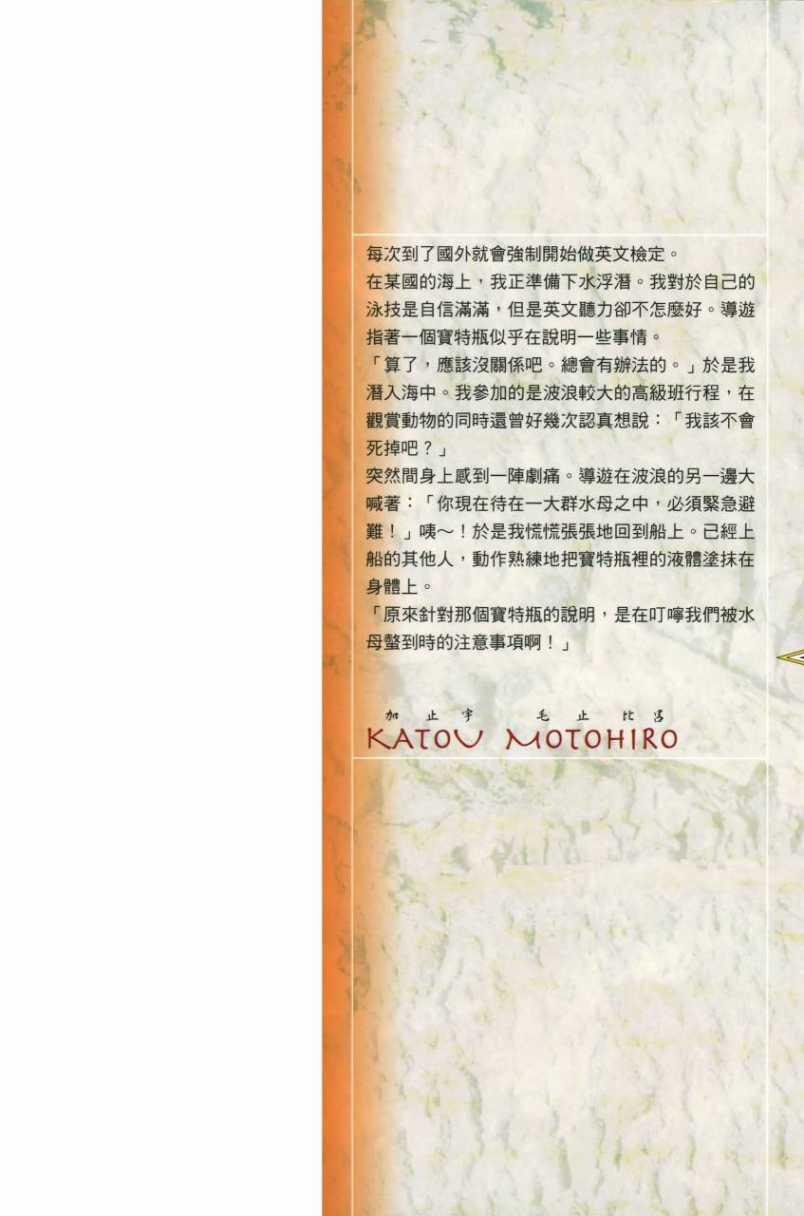 每次到了國外就會強制開始做英文檢定。
在某國的海上，我正準備下水浮潛。我對於自己的
泳技是自信滿滿，但是英文聽力卻不怎麼好。導遊
指著一個寶特瓶似乎在說明一些事情。
「算了，應該沒關係吧。總會有辦法的。」於是我
潛入海中。我參加的是波浪較大的高級班行程，在
觀賞動物的同時還曾好幾次認真想說：「我該不會
死掉吧？」
突然間身上感到一陣劇痛。導遊在波浪的另一邊大
喊著：「你現在待在一大群水母之中，必須緊急避
難！」咦～！於是我慌慌張張地回到船上。已經上
船的其他人，動作熟練地把寶特瓶裡的液體塗抹在
身體上。
「原來針對那個寶特瓶的說明，是在叮嚀我們被水
母螫到時的注意事項啊！」
加 止 宇 毛 止 比 呂
KATOU MOTOHIRO